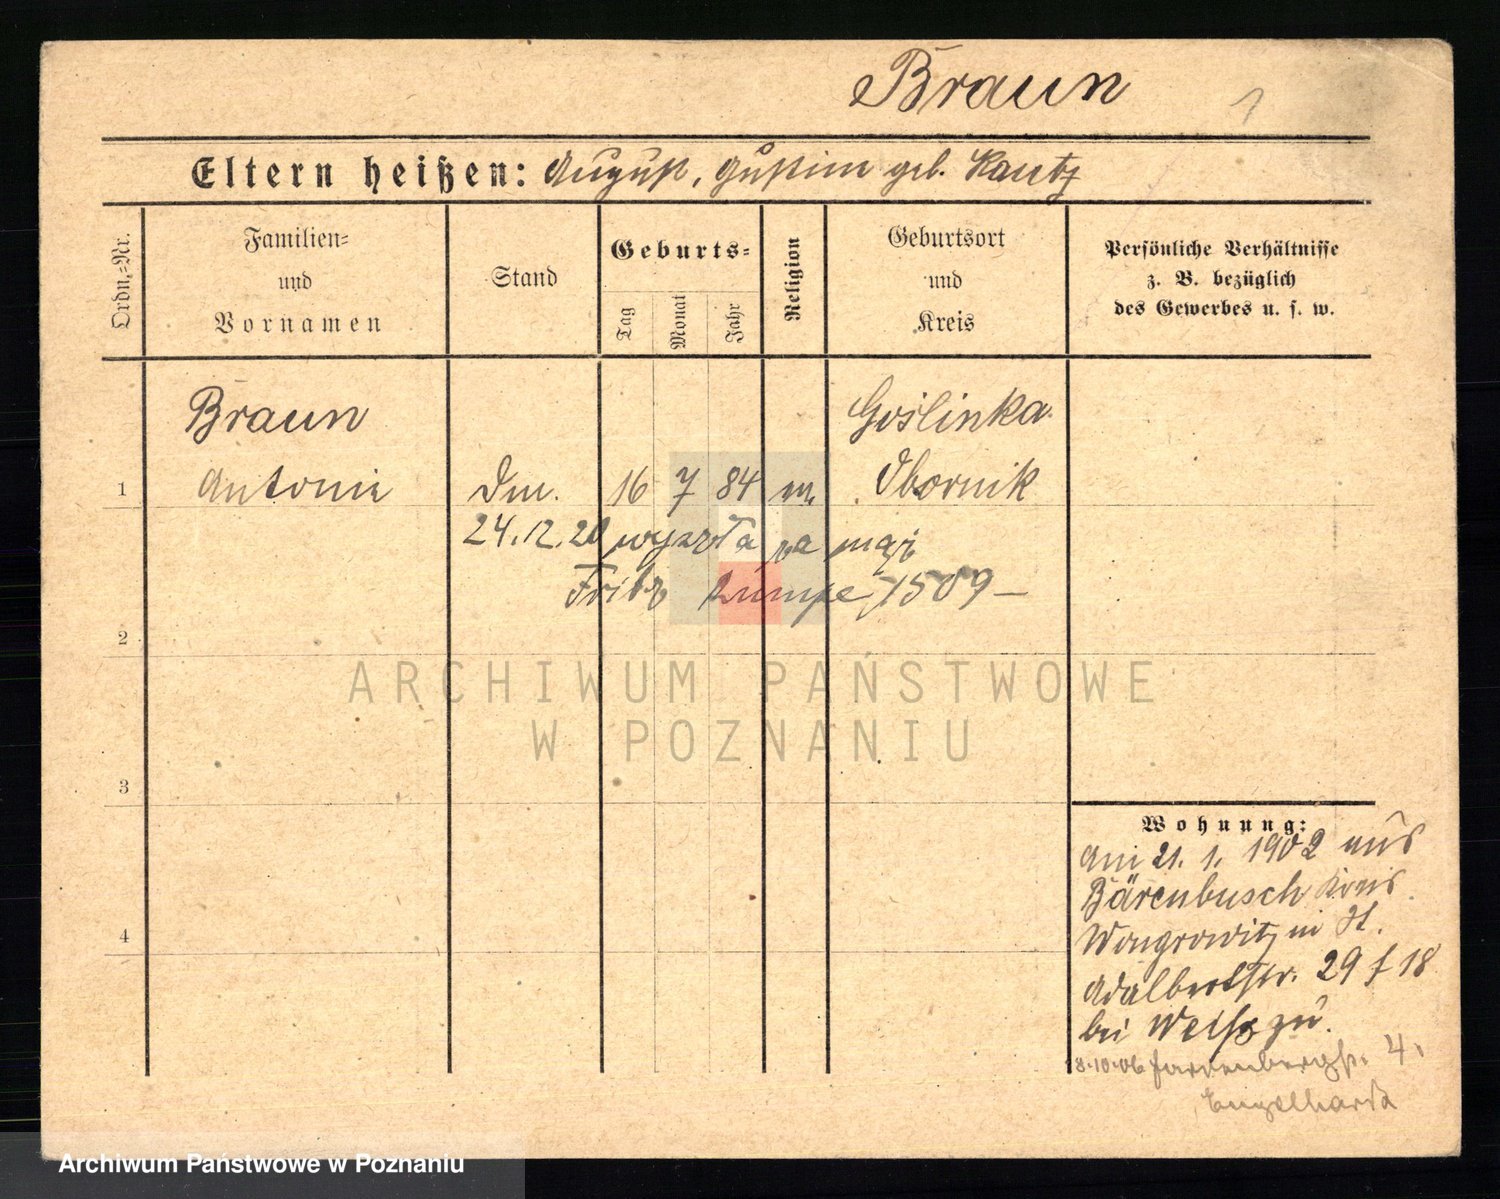 Braun
1
Eltern heißen: August, Justine geb. Kautz
Ordn.-Nr.
Familien-
und
Vornamen
Stand
Geburts-
Tag
Monat
Jahr
Religion
Geburtsort
und
Kreis
Persönliche Verhältnisse
z. B. bezüglich
des Gewerbes u. s. w.
Braun
Goślinka
1
Antonie
16 7 84
Obornik
24.12.20 wyszła za mąż
Fritz 1509 –
2
3
4
Wohnung:
Am 21. 1. 1902 aus
Bärenbusch Kreis
Wongrowitz in St.
Adalbertstr. 29 f 18
bei Weiss zu.
8.10.06 4.
Engelhardt
ARCHIWUM PAŃSTWOWE
W POZNANIU
Archiwum Państwowe w Poznaniu